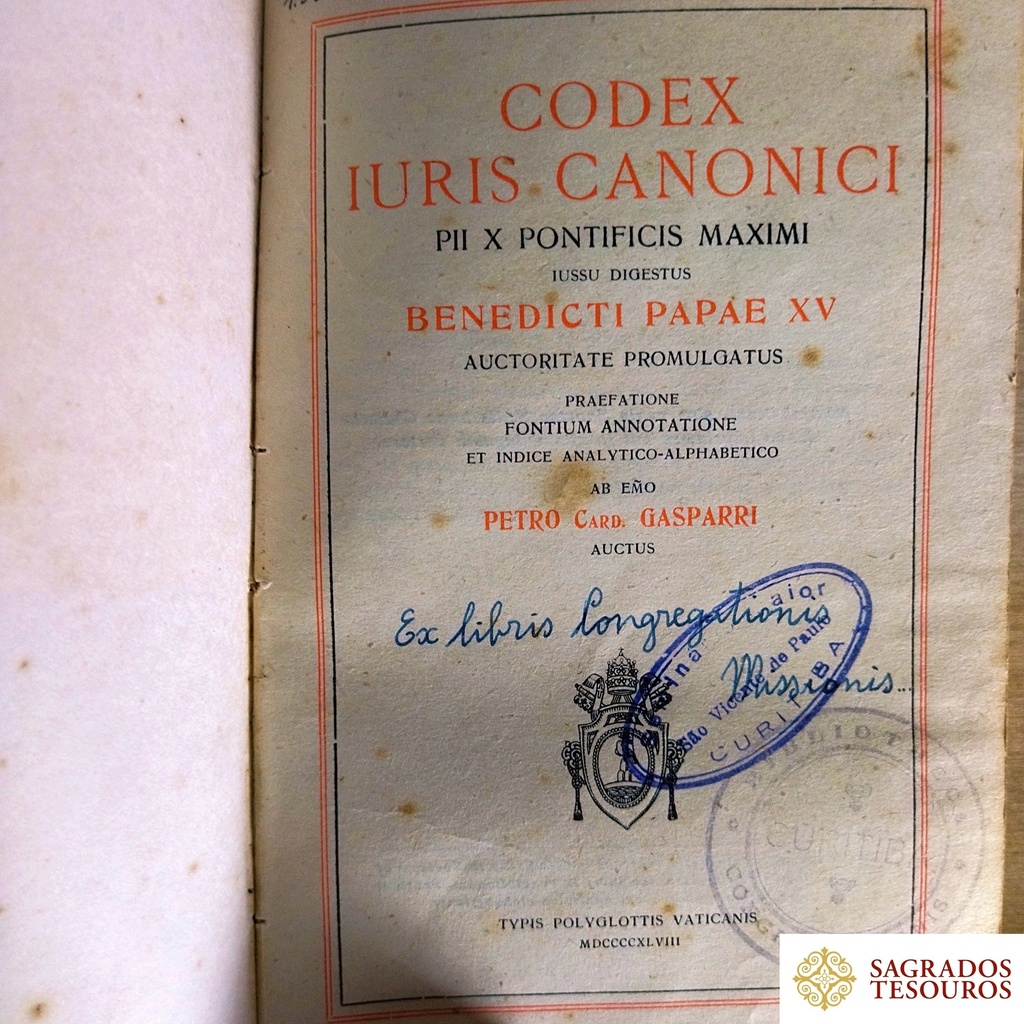 CODEX
IURIS CANONICI
PII X PONTIFICIS MAXIMI
IUSSU DIGESTUS
BENEDICTI PAPAE XV
AUCTORITATE PROMULGATUS
PRAEFATIONE
FONTIUM ANNOTATIONE
ET INDICE ANALYTICO-ALPHABETICO
AB EM̃O
PETRO CARD. GASPARRI
AUCTUS
Ex libris Congregationis
Missionis...
São Vicente de Paulo
CURITIBA
CURITIBA
TYPIS POLYGLOTTIS VATICANIS
MDCCCCXLVIII
SAGRADOS
TESOUROS